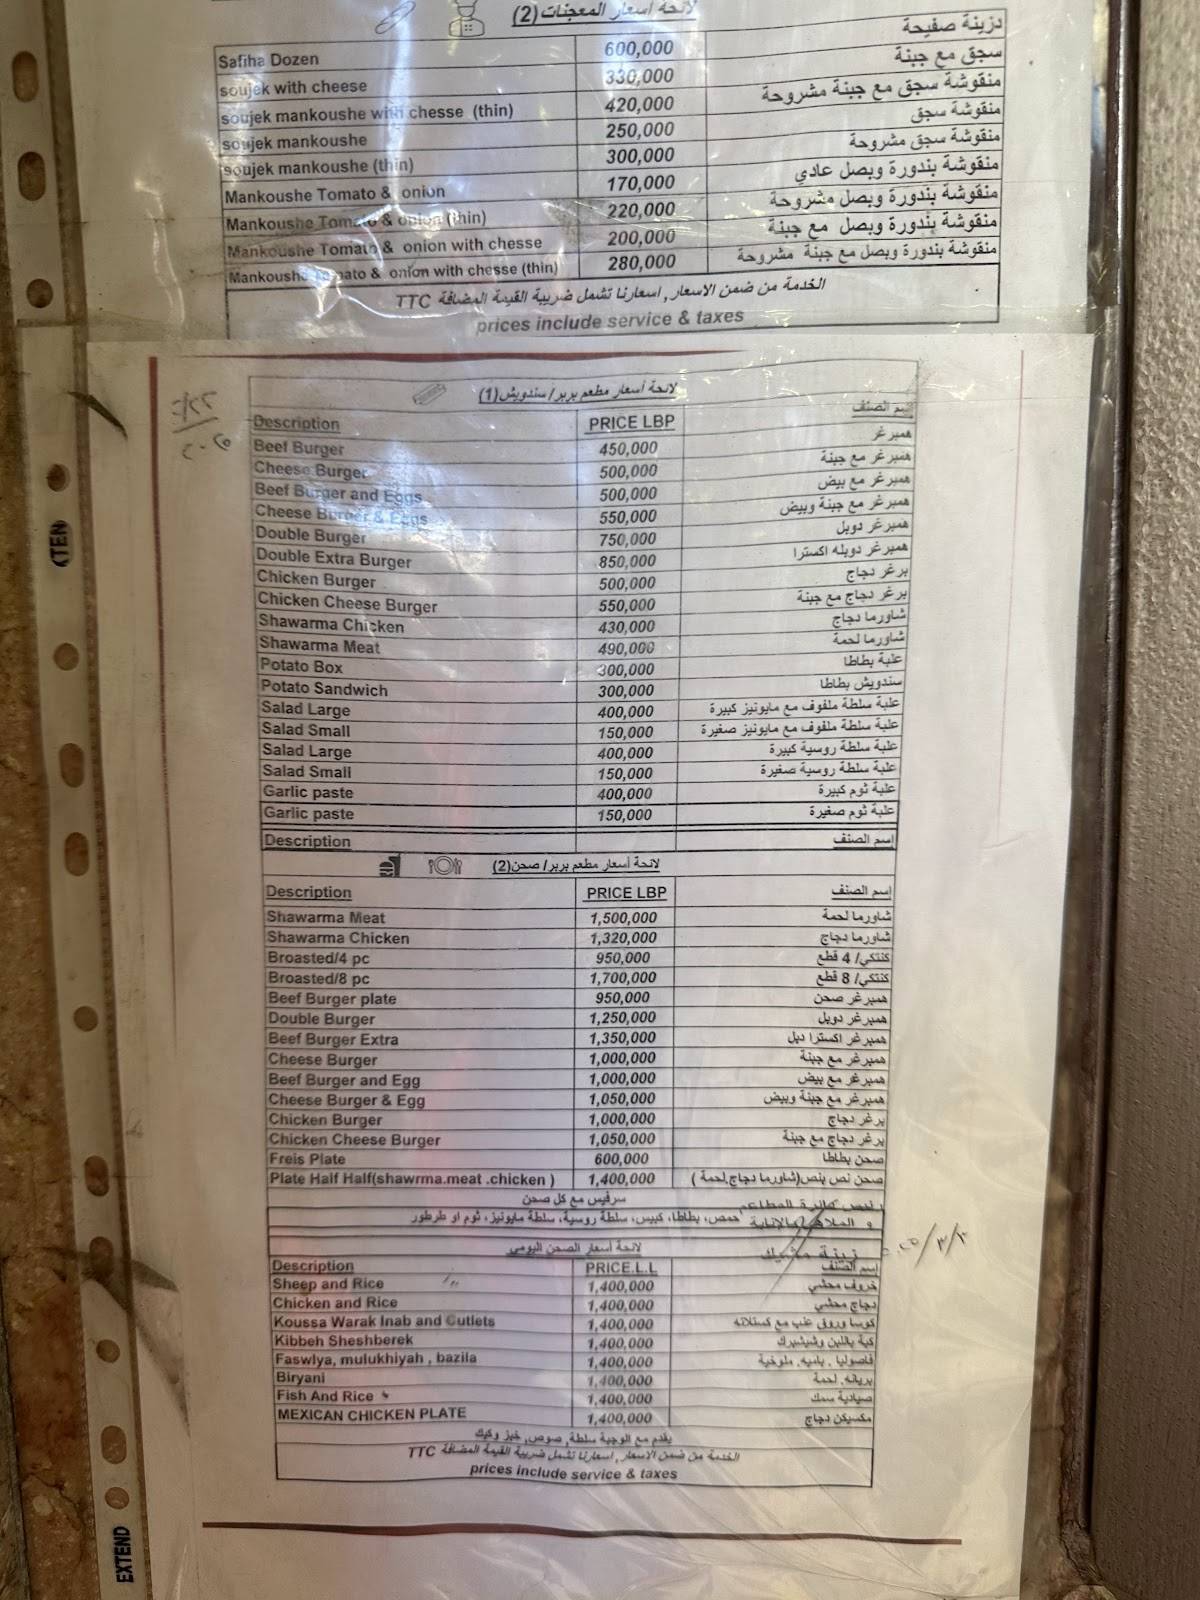 لائحة اسعار المعجنات (2)
Safiha Dozen 600,000 دزينة صفيحة
soujek with cheese 330,000 سجق مع جبنة
soujek mankoushe with chesse (thin) 420,000 منقوشة سجق مع جبنة مشروحة
soujek mankoushe 250,000 منقوشة سجق
soujek mankoushe (thin) 300,000 منقوشة سجق مشروحة
Mankoushe Tomato & onion 170,000 منقوشة بندورة وبصل عادي
Mankoushe Tomato & onion (thin) 220,000 منقوشة بندورة وبصل مشروحة
Mankoushe Tomato & onion with chesse 200,000 منقوشة بندورة وبصل مع جبنة
Mankoushe Tomato & onion with chesse (thin) 280,000 منقوشة بندورة وبصل مع جبنة مشروحة
الخدمة من ضمن الاسعار , اسعارنا تشمل ضريبة القيمة المضافة TTC
prices include service & taxes
لائحة أسعار مطعم بربر/ سندويش (1)
Description PRICE LBP إسم الصنف
Beef Burger 450,000 همبرغر
Cheese Burger 500,000 همبرغر مع جبنة
Beef Burger and Eggs 500,000 همبرغر مع بيض
Cheese Burger & Eggs 550,000 همبرغر مع جبنة وبيض
Double Burger 750,000 همبرغر دوبل
Double Extra Burger 850,000 همبرغر دوبله اكسترا
Chicken Burger 500,000 برغر دجاج
Chicken Cheese Burger 550,000 برغر دجاج مع جبنة
Shawarma Chicken 430,000 شاورما دجاج
Shawarma Meat 490,000 شاورما لحمة
Potato Box 300,000 علبة بطاطا
Potato Sandwich 300,000 سندويش بطاطا
Salad Large 400,000 علبة سلطة ملفوف مع مايونيز كبيرة
Salad Small 150,000 علبة سلطة ملفوف مع مايونيز صغيرة
Salad Large 400,000 علبة سلطة روسية كبيرة
Salad Small 150,000 علبة سلطة روسية صغيرة
Garlic paste 400,000 علبة ثوم كبيرة
Garlic paste 150,000 علبة ثوم صغيرة
Description إسم الصنف
لائحة أسعار مطعم بربر/ صحن (2)
Description PRICE LBP إسم الصنف
Shawarma Meat 1,500,000 شاورما لحمة
Shawarma Chicken 1,320,000 شاورما دجاج
Broasted/4 pc 950,000 كنتكي/ 4 قطع
Broasted/8 pc 1,700,000 كنتكي/ 8 قطع
Beef Burger plate 950,000 همبرغر صحن
Double Burger 1,250,000 همبرغر دوبل
Beef Burger Extra 1,350,000 همبرغر اكسترا دبل
Cheese Burger 1,000,000 همبرغر مع جبنة
Beef Burger and Egg 1,000,000 همبرغر مع بيض
Cheese Burger & Egg 1,050,000 همبرغر مع جبنة وبيض
Chicken Burger 1,000,000 برغر دجاج
Chicken Cheese Burger 1,050,000 برغر دجاج مع جبنة
Freis Plate 600,000 صحن بطاطا
Plate Half Half(shawrma.meat .chicken ) 1,400,000 صحن نص بنص(شاورما دجاج.لحمة )
سرفيس مع كل صحن
حمص، بطاطا، كبيس، سلطة روسية، سلطة مايونيز، ثوم او طرطور
لائحة أسعار الصحن اليومي
Description PRICE.L.L إسم الصنف
Sheep and Rice 1,400,000 خروف محشي
Chicken and Rice 1,400,000 دجاج محشي
Koussa Warak Inab and Cutlets 1,400,000 كوسا وروق عنب مع كستلاته
Kibbeh Sheshberek 1,400,000 كبة باللبن وشيشبرك
Faswlya, mulukhiyah , bazila 1,400,000 فاصوليا . باميه. ملوخية
Biryani 1,400,000 بريانه. لحمة
Fish And Rice 1,400,000 صيادية سمك
MEXICAN CHICKEN PLATE 1,400,000 مكسيكن دجاج
يقدم مع الوجبة سلطة, صوص, خبز وكيك
الخدمة من ضمن الاسعار , اسعارنا تشمل ضريبة القيمة المضافة TTC
prices include service & taxes
EXTEND